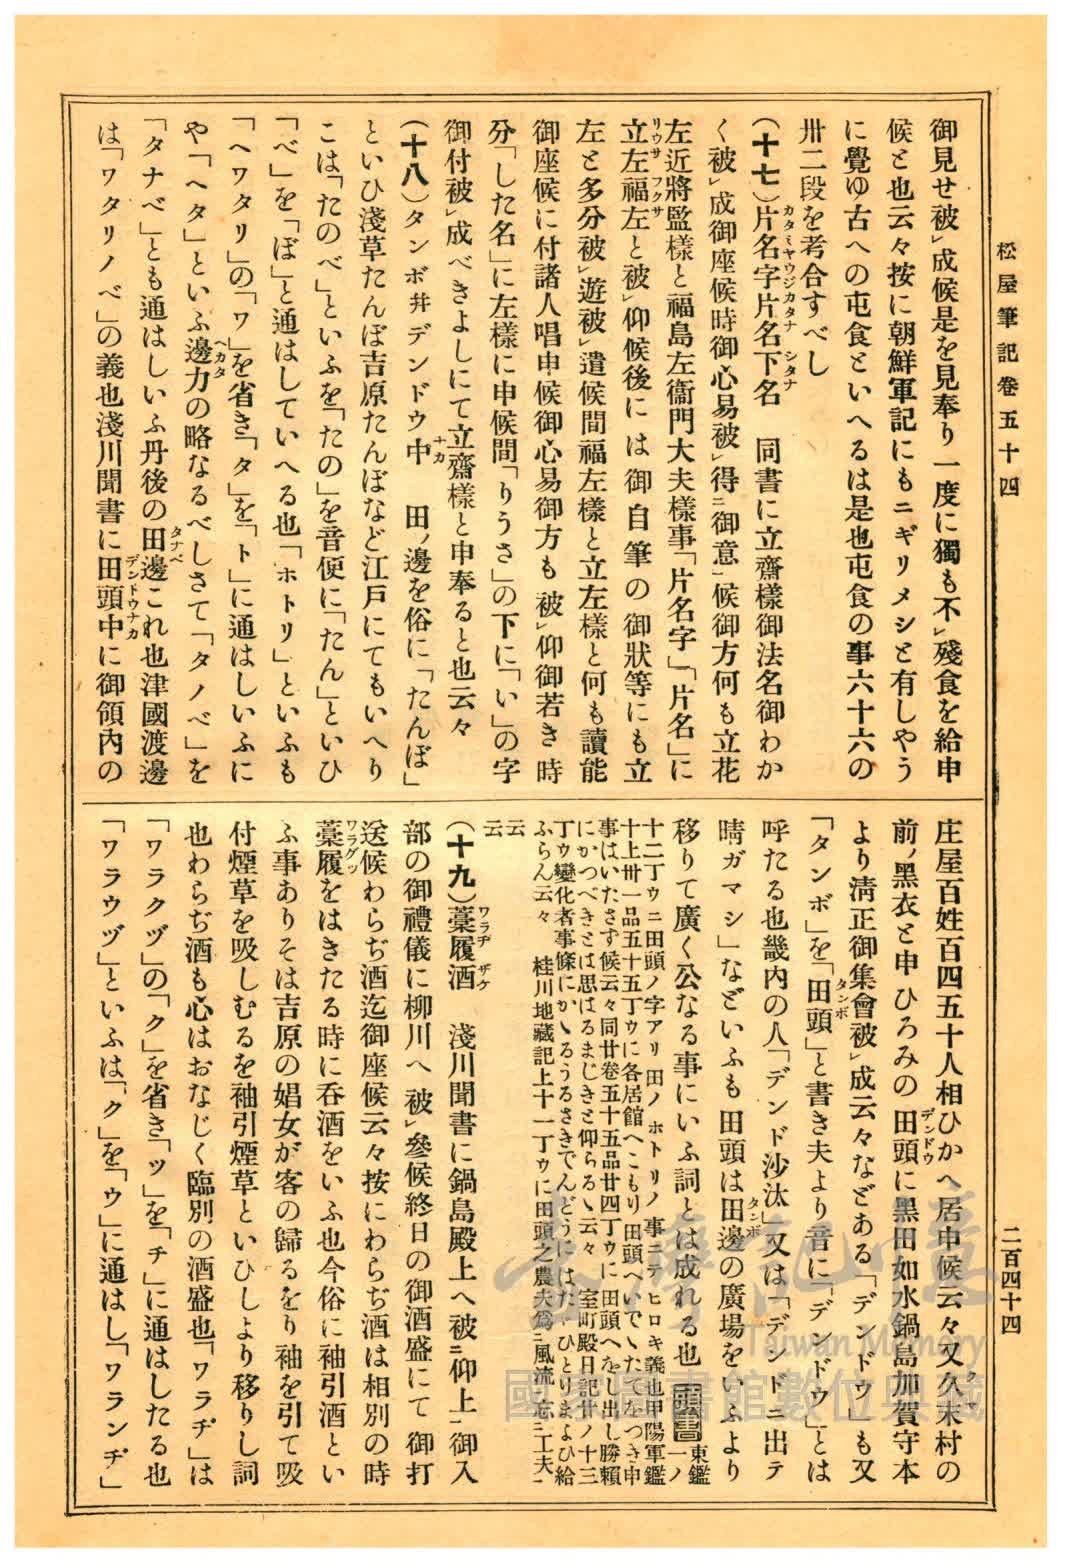 松屋筆記卷五十四
二百四十四
御見せ被㆑成候是を見奉り一度に獨も不㆑殘食を給申
候と也云々按に朝鮮軍記にもニギリメシと有しやう
に覺ゆ古への屯食といへるは是也屯食の事六十六の
卅二段を考合すべし
(十七)片名字片名下名　同書に立齋樣御法名御わか
く被㆑成御座候時御心易被㆑得㆓御意㆒候御方何も立花
左近將監樣と福島左衞門大夫樣事「片名字」「片名」に
立左福左と被㆑仰候後には御自筆の御狀等にも立
左と多分被㆑遊被㆑遣候間福左樣と立左樣と何も讀能
御座候に付諸人唱申候御心易御方も被㆑仰御若き時
分「した名」に左樣に申候間「りうさ」の下に「い」の字
御付被㆑成べきよしにて立齋樣と申奉ると也云々
(十八)タンボ幷デンドウ中　田ノ邊を俗に「たんぼ」
といひ淺草たんぼ吉原たんぼなど江戸にてもいへり
こは「たのべ」といふを「たの」を音便に「たん」といひ
「べ」を「ぼ」と通はしていへる也「ホトリ」といふも
「ヘワタリ」の「ワ」を省き「タ」を「ト」に通はしいふに
や「ヘタ」といふ邊力の略なるべしさて「タノベ」を
「タナベ」とも通はしいふ丹後の田邊これ也津國渡邊
は「ワタリノベ」の義也淺川聞書に田頭中に御領內の
庄屋百姓百四五十人相ひかへ居申候云々又久末村の
前ノ黑衣と申ひろみの田頭に黑田如水鍋島加賀守本
より淸正御集會被㆑成云々などある「デンドウ」も又
「タンボ」を「田頭」と書き夫より音に「デンドウ」とは
呼たる也畿內の人「デンド沙汰」又は「デンドニ出テ
晴ガマシ」などいふも田頭は田邊の廣場をいふより
移りて廣く公なる事にいふ詞とは成れる也　頭書　東鑑一ノ
十二丁ウニ田頭ノ字アリ田ノホトリノ事ニテヒロキ義也甲陽軍鑑
十上卅一品五十五丁ウに各居館へこもり田頭へいでヽたてをつき申
事はいたさず候云々同廿卷五十五品廿四丁ウに田頭へをし出し勝賴
にかつべきとは思はるまじきと仰らるヽ云々　室町殿日記廿ノ十三
丁ウ變化者事條にかヽるうるさきでんどうにはたヾひとりまよひ給
ふらん云々　桂川地藏記上十一丁ウに田頭之農夫爲㆓風流㆒忘㆓工夫㆒
云云
(十九)藁履酒　淺川聞書に鍋島殿上へ被㆓仰上㆒御入
部の御禮儀に柳川へ被㆑參候終日の御酒盛にて御打
送候わらぢ酒迄御座候云々按にわらぢ酒は相別の時
藁履をはきたる時に呑酒をいふ也今俗に袖引酒とい
ふ事ありそは吉原の娼女が客の歸るをり袖を引て吸
付煙草を吸しむるを袖引煙草といひしより移りし詞
也わらぢ酒も心はおなじく臨別の酒盛也「ワラヂ」は
「ワラクヅ」の「ク」を省き「ツ」を「チ」に通はしたる也
「ワラウヅ」といふは「ク」を「ウ」に通はし「ワランヂ」